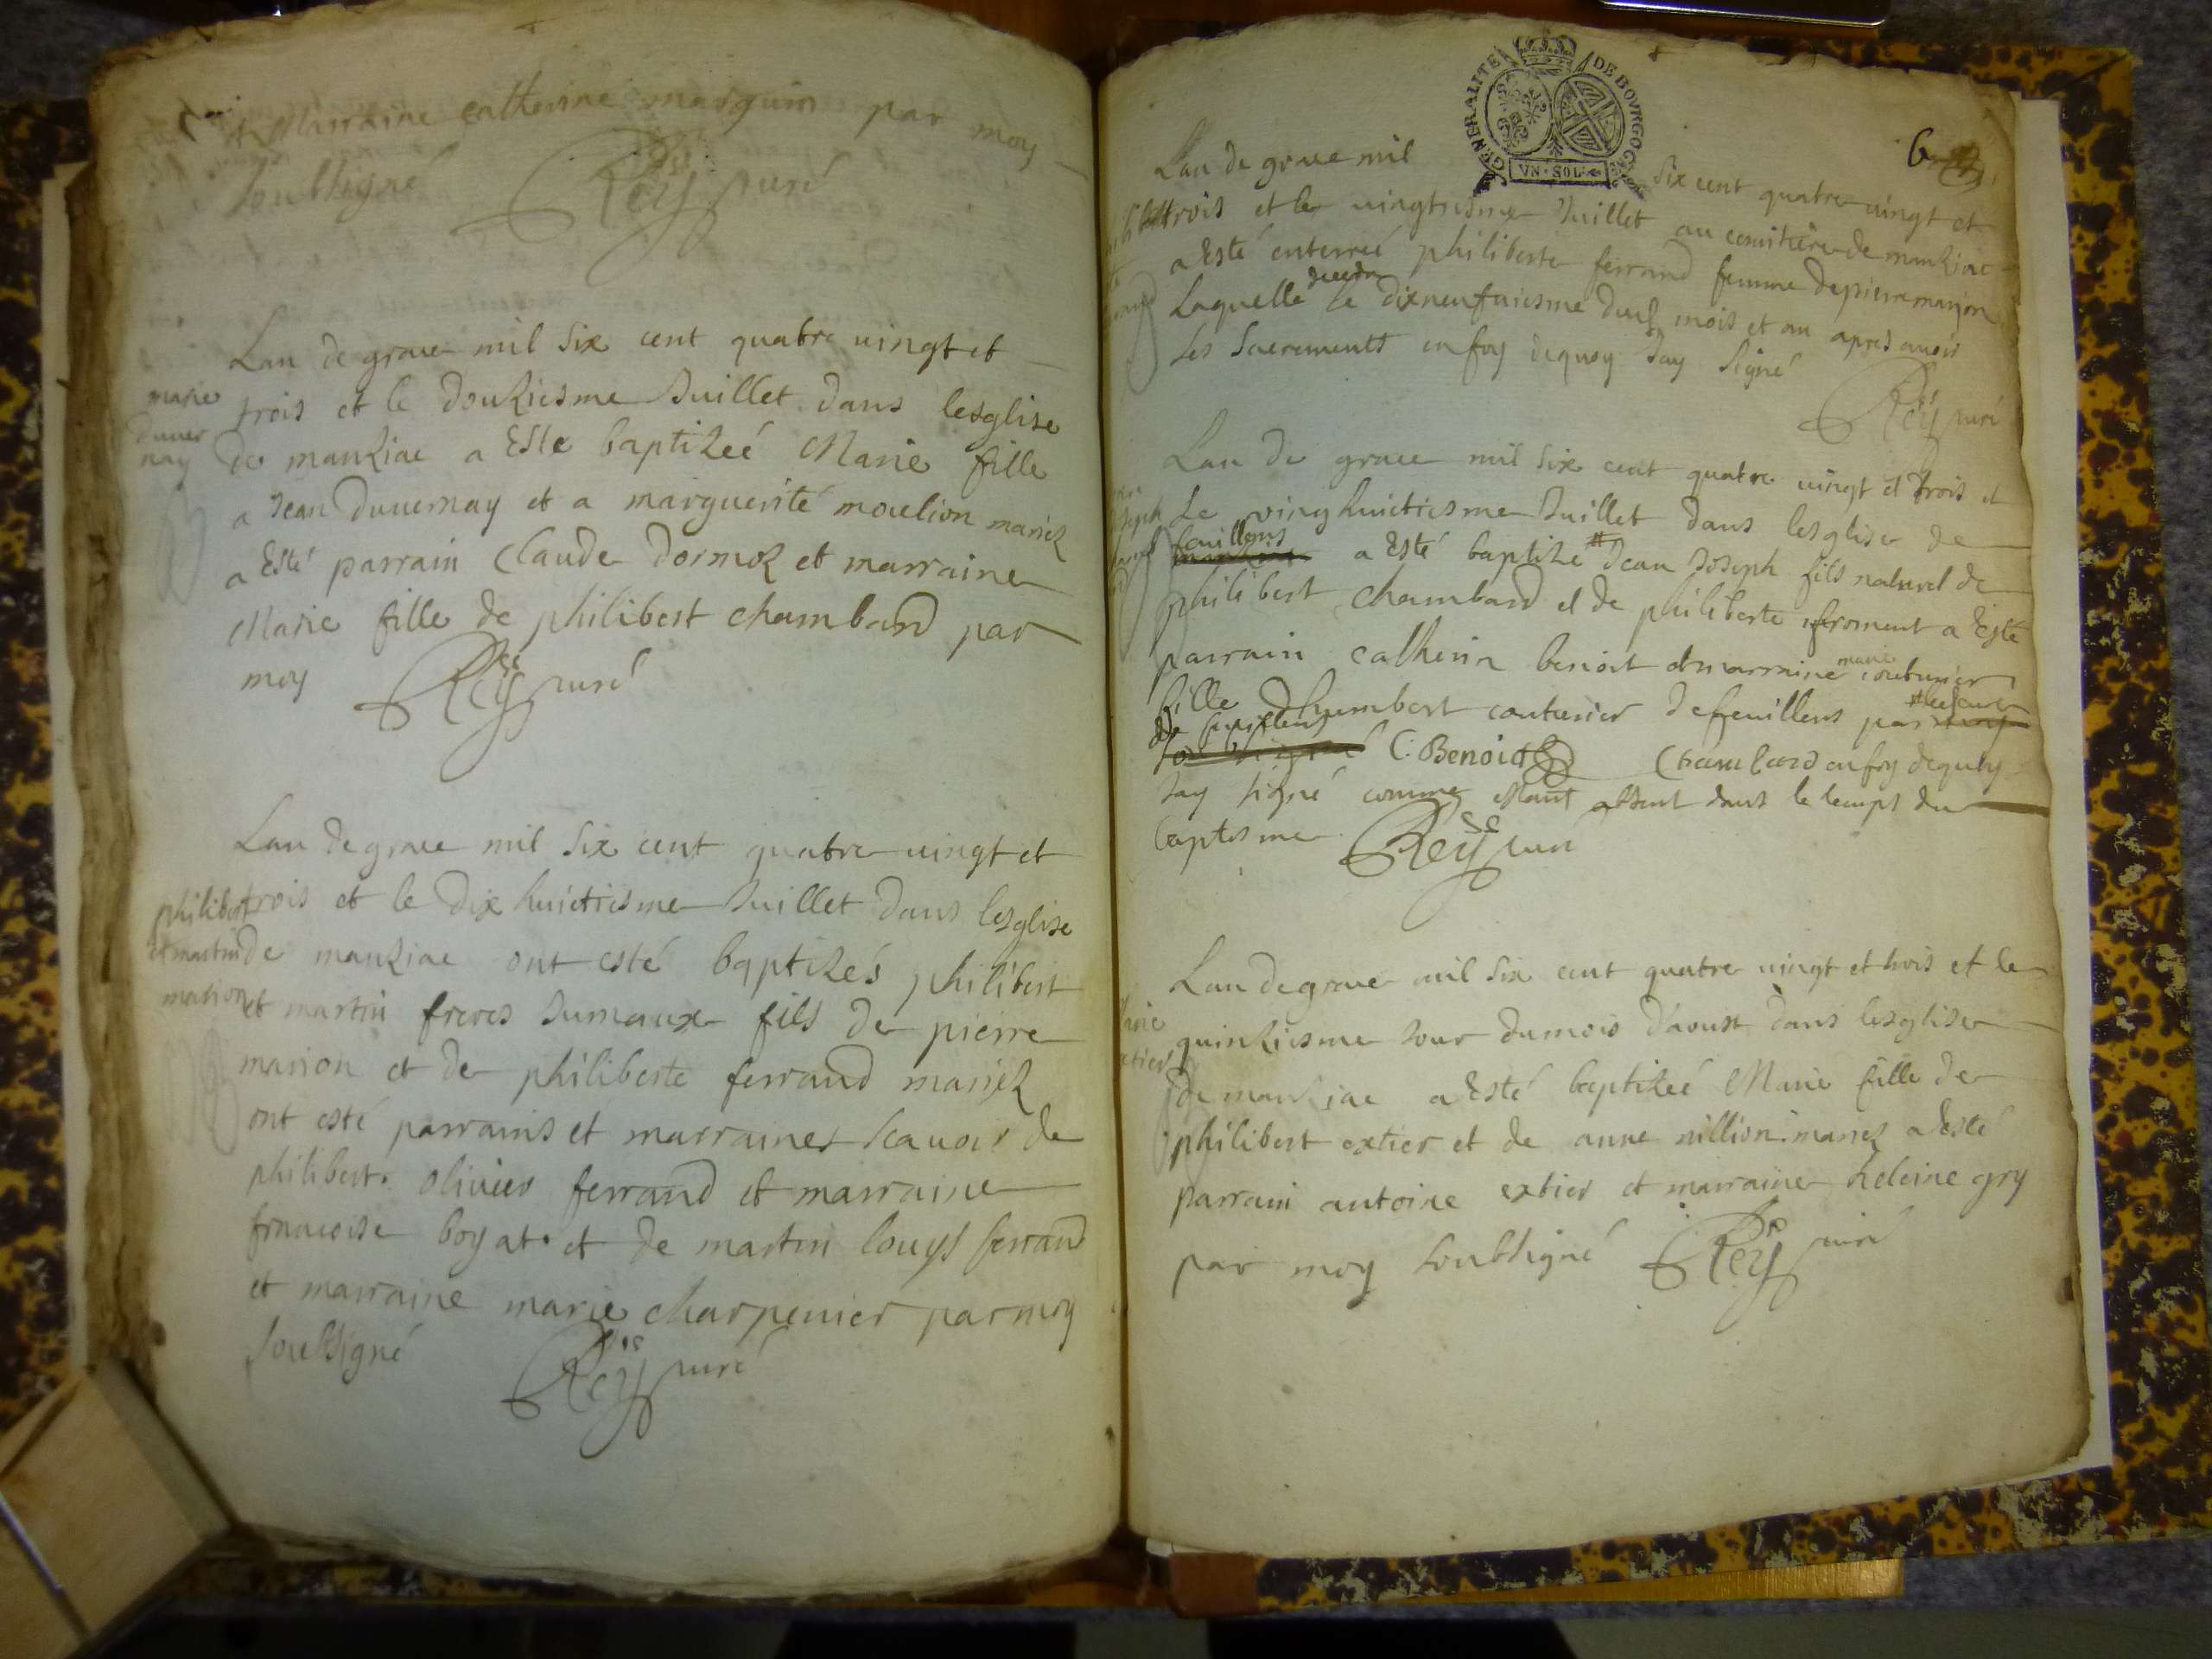 et Marraine catherine marguin par moy
soubsigné Rey curé
Lan de grace mil six cent quatre uingt et
trois et le douziesme Juillet dans lesglise
de manziac a Esté baptizeé Marie fille
a Jean Duuernay et a marguerite moulion mariez
a Esté parrain Claude dormoz et marraine
Marie fille de philibert chambard par
moy Rey curé
marie
duuer
nay
Lan de grace mil six cent quatre uingt et
trois et le dix huictiesme Juillet dans lesglise
de manziac ont esté baptizés philibert
et martin freres Jumeaux fils de pierre
marion et de philiberte ferrand mariez
ont esté parrains et marraines scauoir de
philibert olivier ferrand et marraine
francoise boyat et de martin louys ferrand
et marraine marie charpenier par moy
soubsigné Rey curé
philibert
et martin
marion
GENERALITE DE BOVRGOGNE
VN·SOL
6
Lan de grace mil six cent quatre uingt et
trois et le uingtiesme Juillet au cemitiere de manziac
a Esté enterreé philiberte ferrand femme de pierre marion
Laquelle deceda le dixneufuiesme dud mois et an apres auoir
les Sacrements en foy dequoy Jay signé
Rey curé
Lan de grace mil six cent quatre uingt et trois et
Le vinghuictiesme Juillet dans lesglise de
feuillens a Esté baptize # Jean Joseph fils naturel de
philibert chambard et de philiberte froment a Esté
parrain catherin benoit et marraine marie couturier
fille dhumbert couturier de feuillens par # le sieur curé
de feuillens C: Benoit Chambard en foy dequoy
Jay signé comme estant absent dans le temps du
baptesme Rey curé
Lan de grace mil six cent quatre uingt et trois et le
quinziesme Jour du mois d'aoust dans lesglise
de manziac a Esté baptizeé Marie fille de
philibert extier et de anne nillion mariez a Esté
parrain antoine extier et marraine heleine gry
par moy soubsigné Rey curé